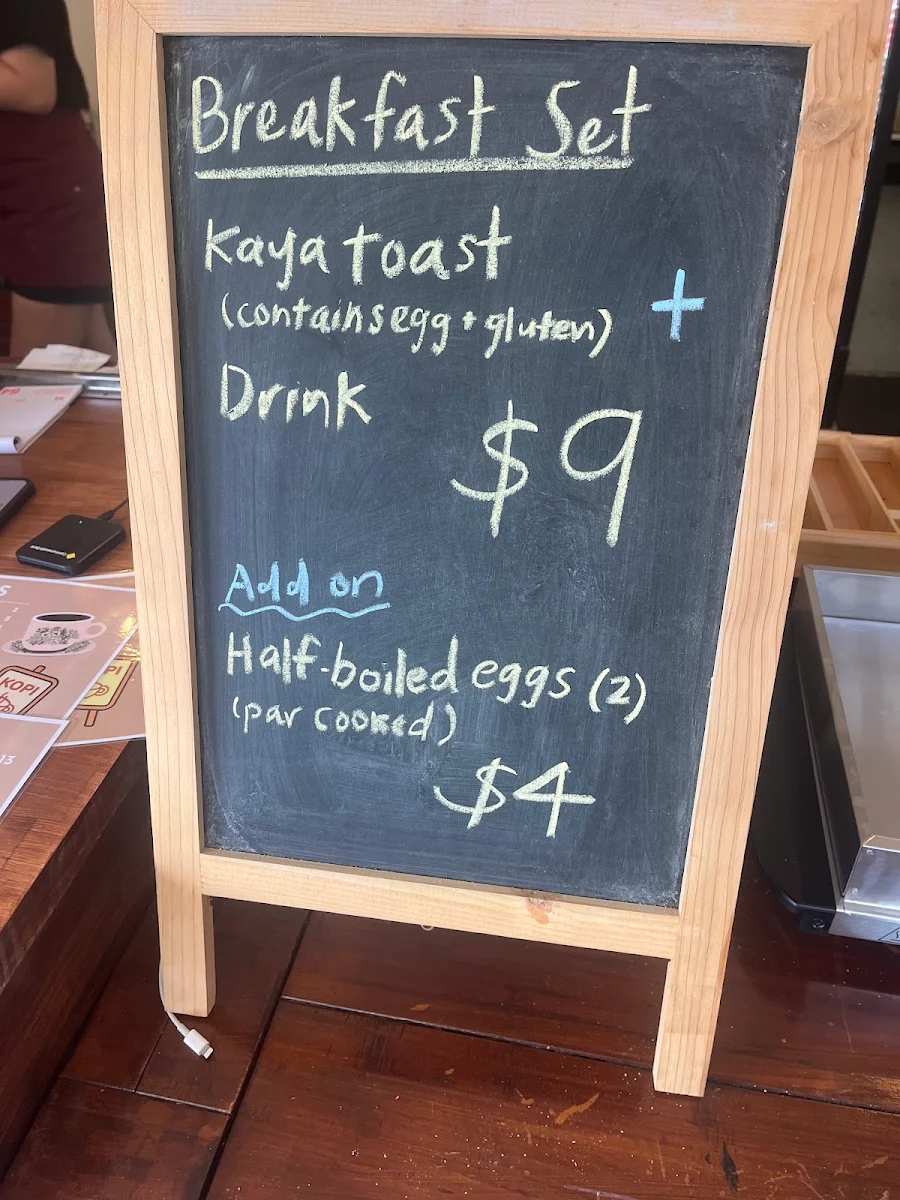 Breakfast Set
Kaya toast
(contains egg + gluten)
+
Drink
$9
Add on
Half-boiled eggs (2)
(par cooked)
$4
KOPI